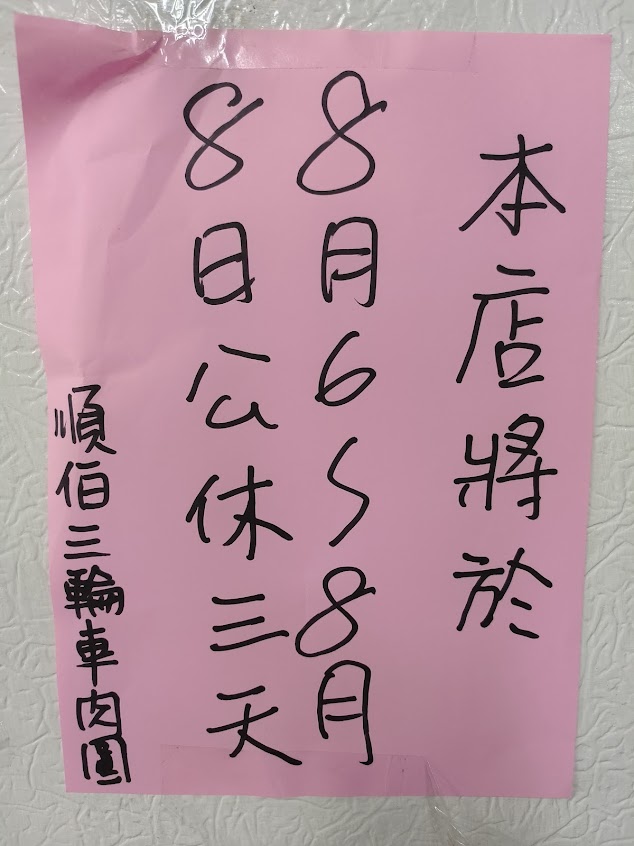 本店將於
8月6~8月
8日公休三天
順伯三輪車肉圓